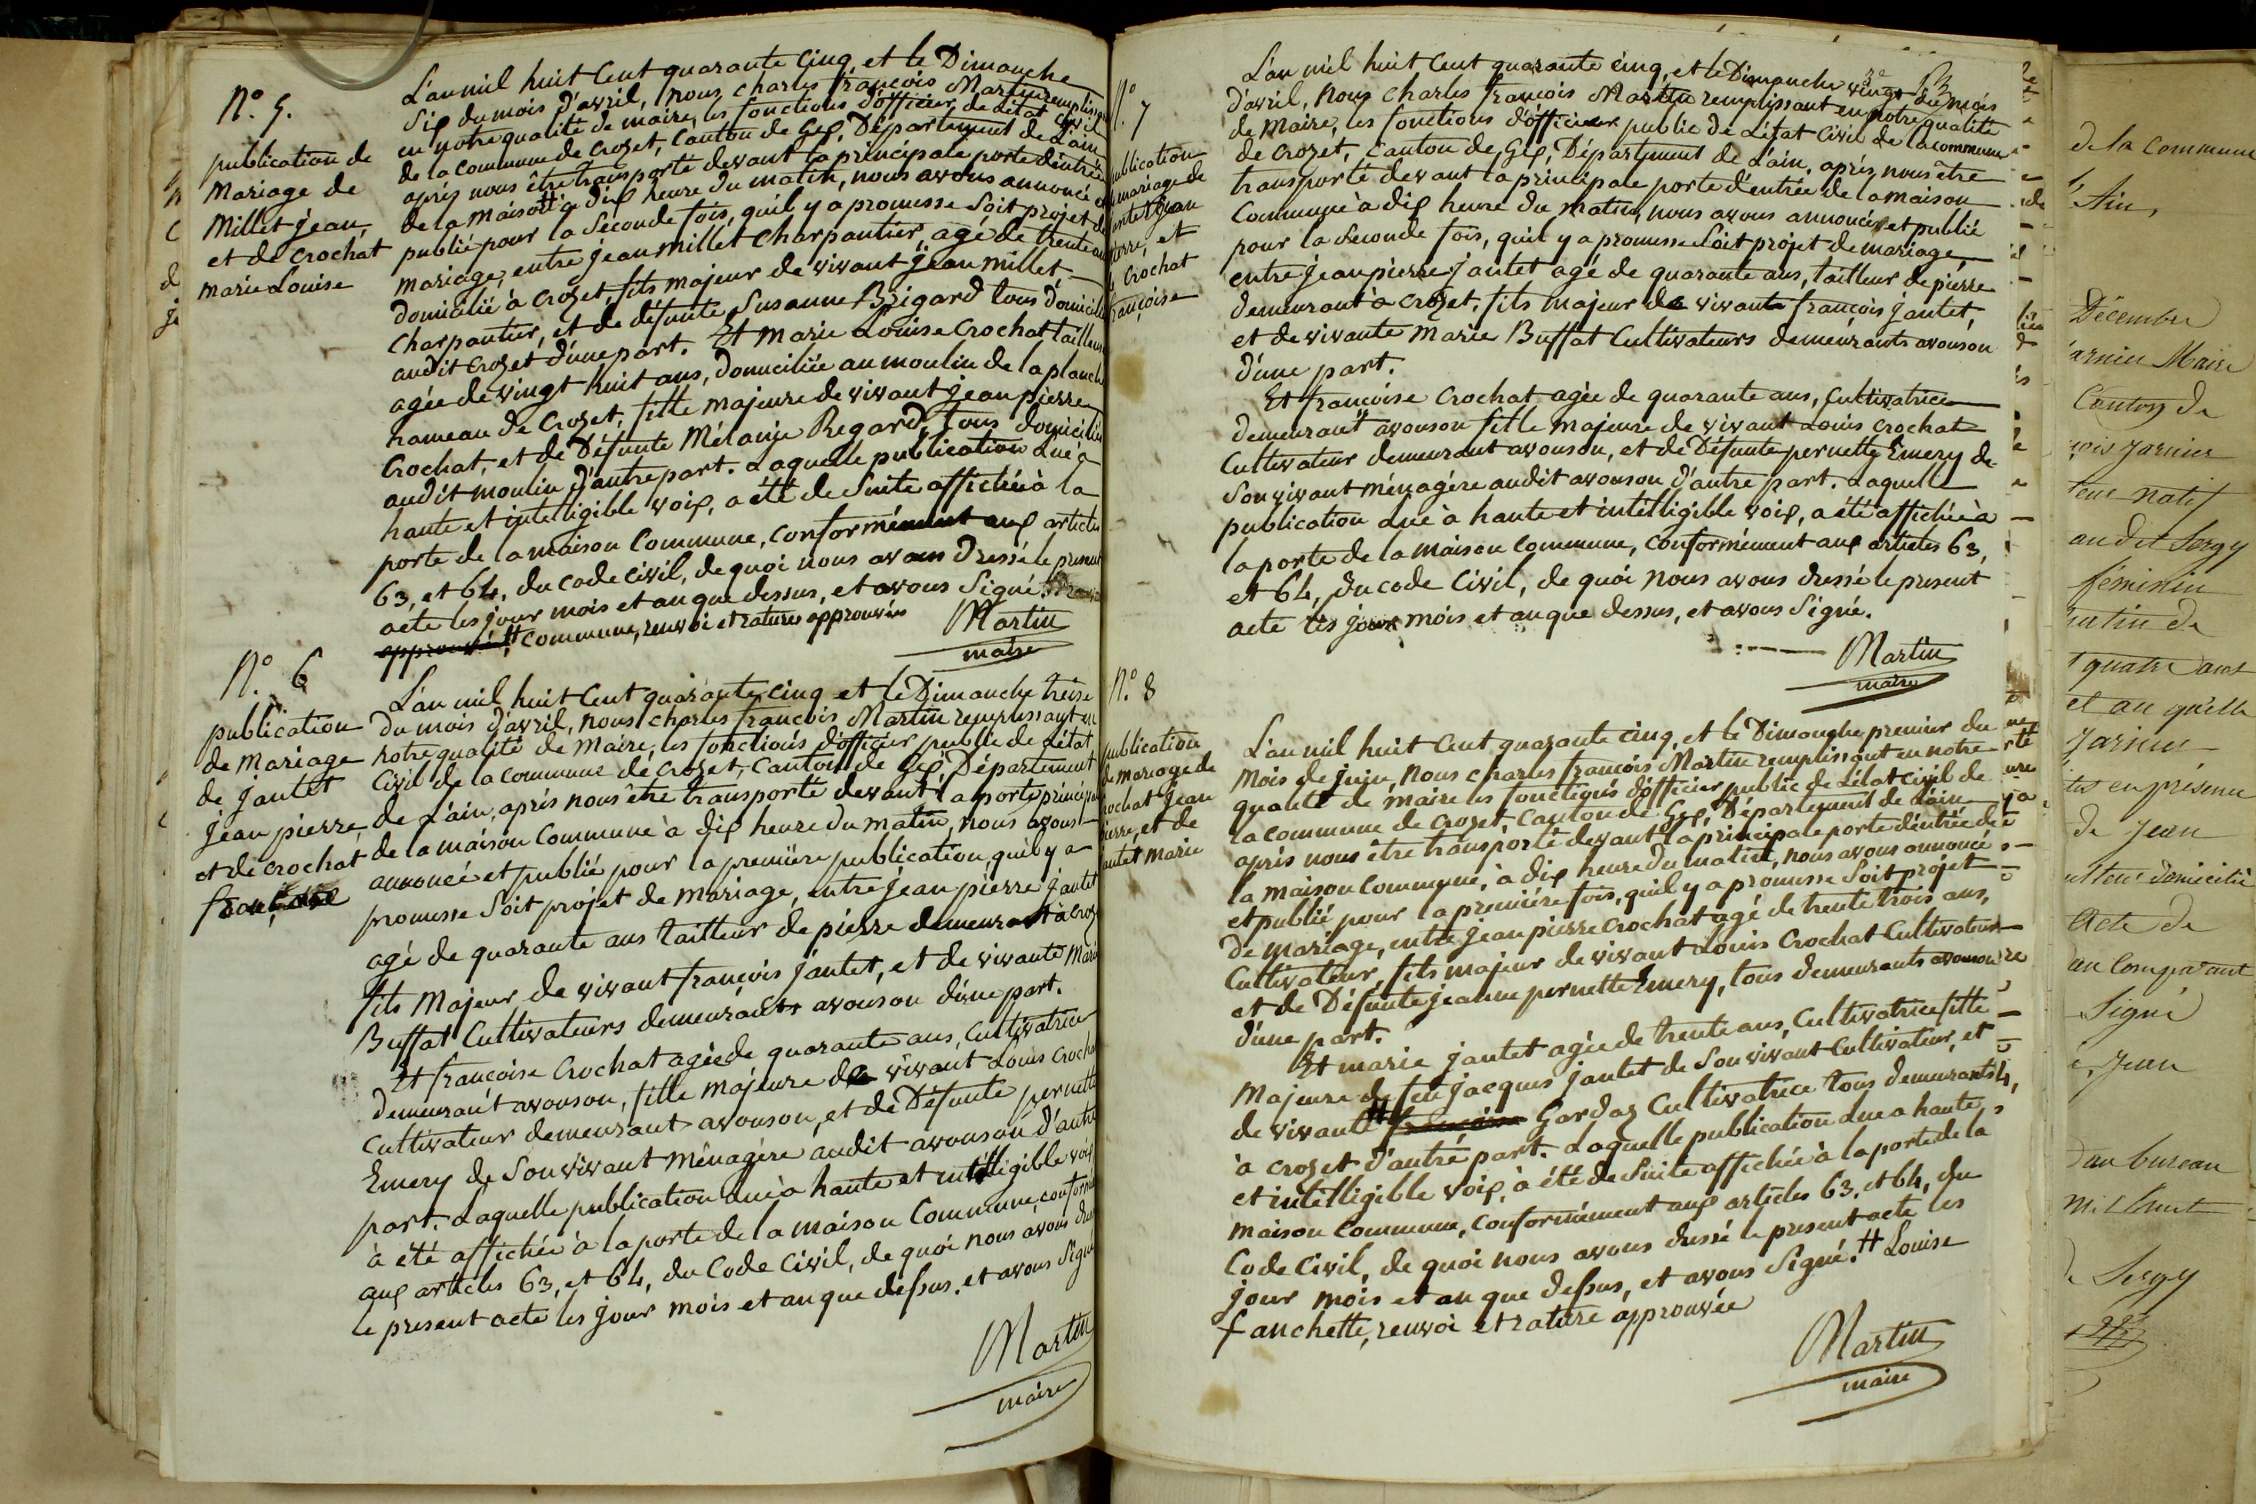 N.° 5.
publication de
Mariage de
Millet jean,
et de crochat
marie Louise
L'an mil huit Cent quarante Cinq, et le Dimanche
Six du mois d'avril, Nous charles françois Martin remplissant
en notre qualité de maire, les fonctions d'officier de L'état Civil
de la commune de crozet, Canton de Gex, Département de L'ain
après nous être transporté devant la principale porte d'entrée
de la maison # à dix heure du matin, nous avons annoncé et
publié pour la Seconde fois, qu'il y a promesse Soit projet de
mariage, entre jean millet Charpantier, agé de trente ans
domicilié à Crozet, fils majeur de vivant jean millet
Charpantier, et de défunte Susanne Brigard tous domiciliés
audit Crozet d'une part. Et Marie Louise Crochat, tailleuse
agée de vingt huit ans, domiciliée au moulin de la planche
hameau de Crozet, fille majeure de vivant jean pierre
Crochat, et de Défunte Mélanie Regard, tous domiciliés
audit moulin d'autre part. Laquelle publication Lue a
haute et intelligible voix, a été de Suite affichée à la
porte de la maison Commune, Conformément aux articles
63, et 64, du Code Civil, de quoi nous avons dressé le présent
acte les jour mois et an que dessus, et avons Signé.
approuvé # Commune, renvoi et ratures approuvées
Martin
maire
N.° 6
publication
de Mariage
de jantet
jean pierre,
et de crochat
françoise
L'an mil huit Cent quarante cinq et le Dimanche treise
du mois d'avril, nous charles françois Martin remplissant en
notre qualité de Maire, les fonctions d'officier public de L'état
Civil de la commune de Crozet, Canton de Gex Département
de L'ain, après nous être transporté devant la porte principale
de la maison Commune à dix heure du matin, nous avons
annoncé et publié pour la première publication, qu'il y a
promesse Soit projet de Mariage, entre jean pierre jantet
agé de quarante ans tailleur de pierre demeurant à Crozet
fils Majeur de vivant françois jantet, et de vivante Marie
Buffat Cultivateurs demeurants avouson d'une part.
Et françoise Crochat agée de quarante ans, Cultivatrice
Demeurant avouson, fille majeure de vivant Louis Crochat
Cultivateur demeurant avouson, et de Défunte pernette
Emery de Son vivant Ménagère audit avouson d'autre
part. Laquelle publication lue à haute et intelligible voix
à été affichée à la porte de la maison Commune, conformément
aux articles 63, et 64, du Code Civil, de quoi nous avons dressé
le present acte les jour mois et an que dessus. et avons Signé
Martin
maire
N.° 7
publication
mariage de
jantet jean
pierre, et
de Crochat
françoise
L'an mil huit Cent quarante cinq, et le Dimanche vingt du mois
d'avril, Nous Charles françois Martin remplissant en notre qualité
de Maire, les fonctions d'officier public de L'état Civil de la commune
de Crozet, Canton de Gex, Département de L'ain, après nous être
transporté devant la principale porte d'entrée de la maison
Commune à dix heure du matin, nous avons annoncé et publié
pour la Seconde fois, qu'il y a promesse Soit projet de mariage,
entre jean pierre jantet agé de quarante ans, tailleur de pierre
demeurant à Crozet, fils majeur de vivant françois jantet,
et de vivante Marie Buffat Cultivateurs demeurants avouson
d'une part.
Et françoise Crochat agée de quarante ans, Cultivatrice
demeurant avouson fille majeure de vivant Louis Crochat
Cultivateur demeurant avouson, et de Défunte pernette Emery de
Son vivant Ménagère audit avouson d'autre part. Laquelle
publication lue à haute et intelligible voix, a été affichée à
la porte de la Maison Commune, Conformément aux articles 63,
et 64, du Code Civil, de quoi nous avons dressé le présent
acte les jour mois et an que dessus, et avons Signé.
Martin
maire
N.° 8
publication
de mariage de
crochat jean
pierre, et de
jantet Marie
L'an mil huit Cent quarante cinq, et le Dimanche premier du
Mois de juin, Nous Charles françois Martin remplissant en notre
qualité de maire les fonctions d'officier public de L'état civil de
la Commune de Crozet, Canton de Gex, Département de L'ain
après nous être transporté devant la principale porte d'entrée de
la maison Commune, à dix heure du matin, nous avons annoncé
et publié pour la première fois, qu'il y a promesse Soit projet
de mariage, entre jean pierre Crochat agé de trente trois ans,
Cultivateur, fils majeur de vivant Louis Crochat Cultivateur
et de Défunte jeanne pernette Emery, tous demeurants avouson
d'une part.
Et marie jantet agée de trente ans, Cultivatrice fille
Majeure de feu jacques jantet de Son vivant Cultivateur, et
de vivante # françoise Gardaz Cultivatrice tous demeurants
à Crozet d'autre part. Laquelle publication lue a haute
et intelligible voix, à été de Suite affichée à la porte de la
maison Commune, Conformément aux articles 63, et 64, du
Code Civil, de quoi nous avons dressé le present acte les
jour mois et an que dessus, et avons Signé. # Louise
fanchette, renvoi et rature approuvée
Martin
maire
de la commune
Ain,
Décembre
Maire
Canton de
natif
audit Sergy
féminin
matin de
quatre ans
et an qu'elle
en présence
de Jean
domicilié
Acte de
au Comparant
Signé
Jean
au bureau
Sergy